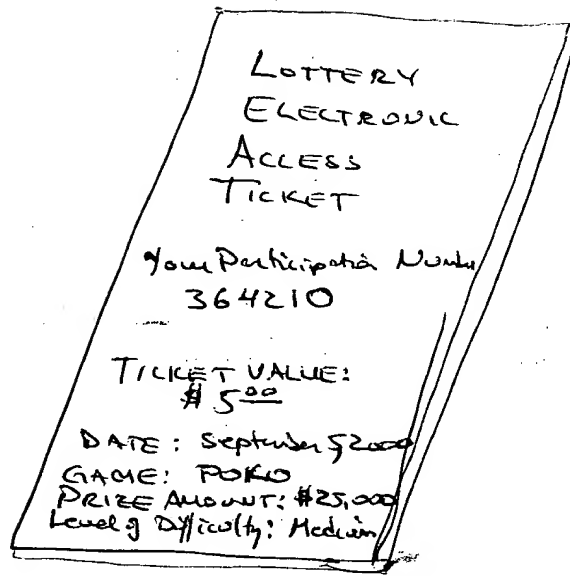 LOTTERY
ELECTRONIC
ACCESS
TICKET
Your Participation Number
364210
TICKET VALUE:
$ 5.00
DATE: September 5, 2000
GAME: POKO
PRIZE AMOUNT: $25,000
Level of Difficulty: Medium